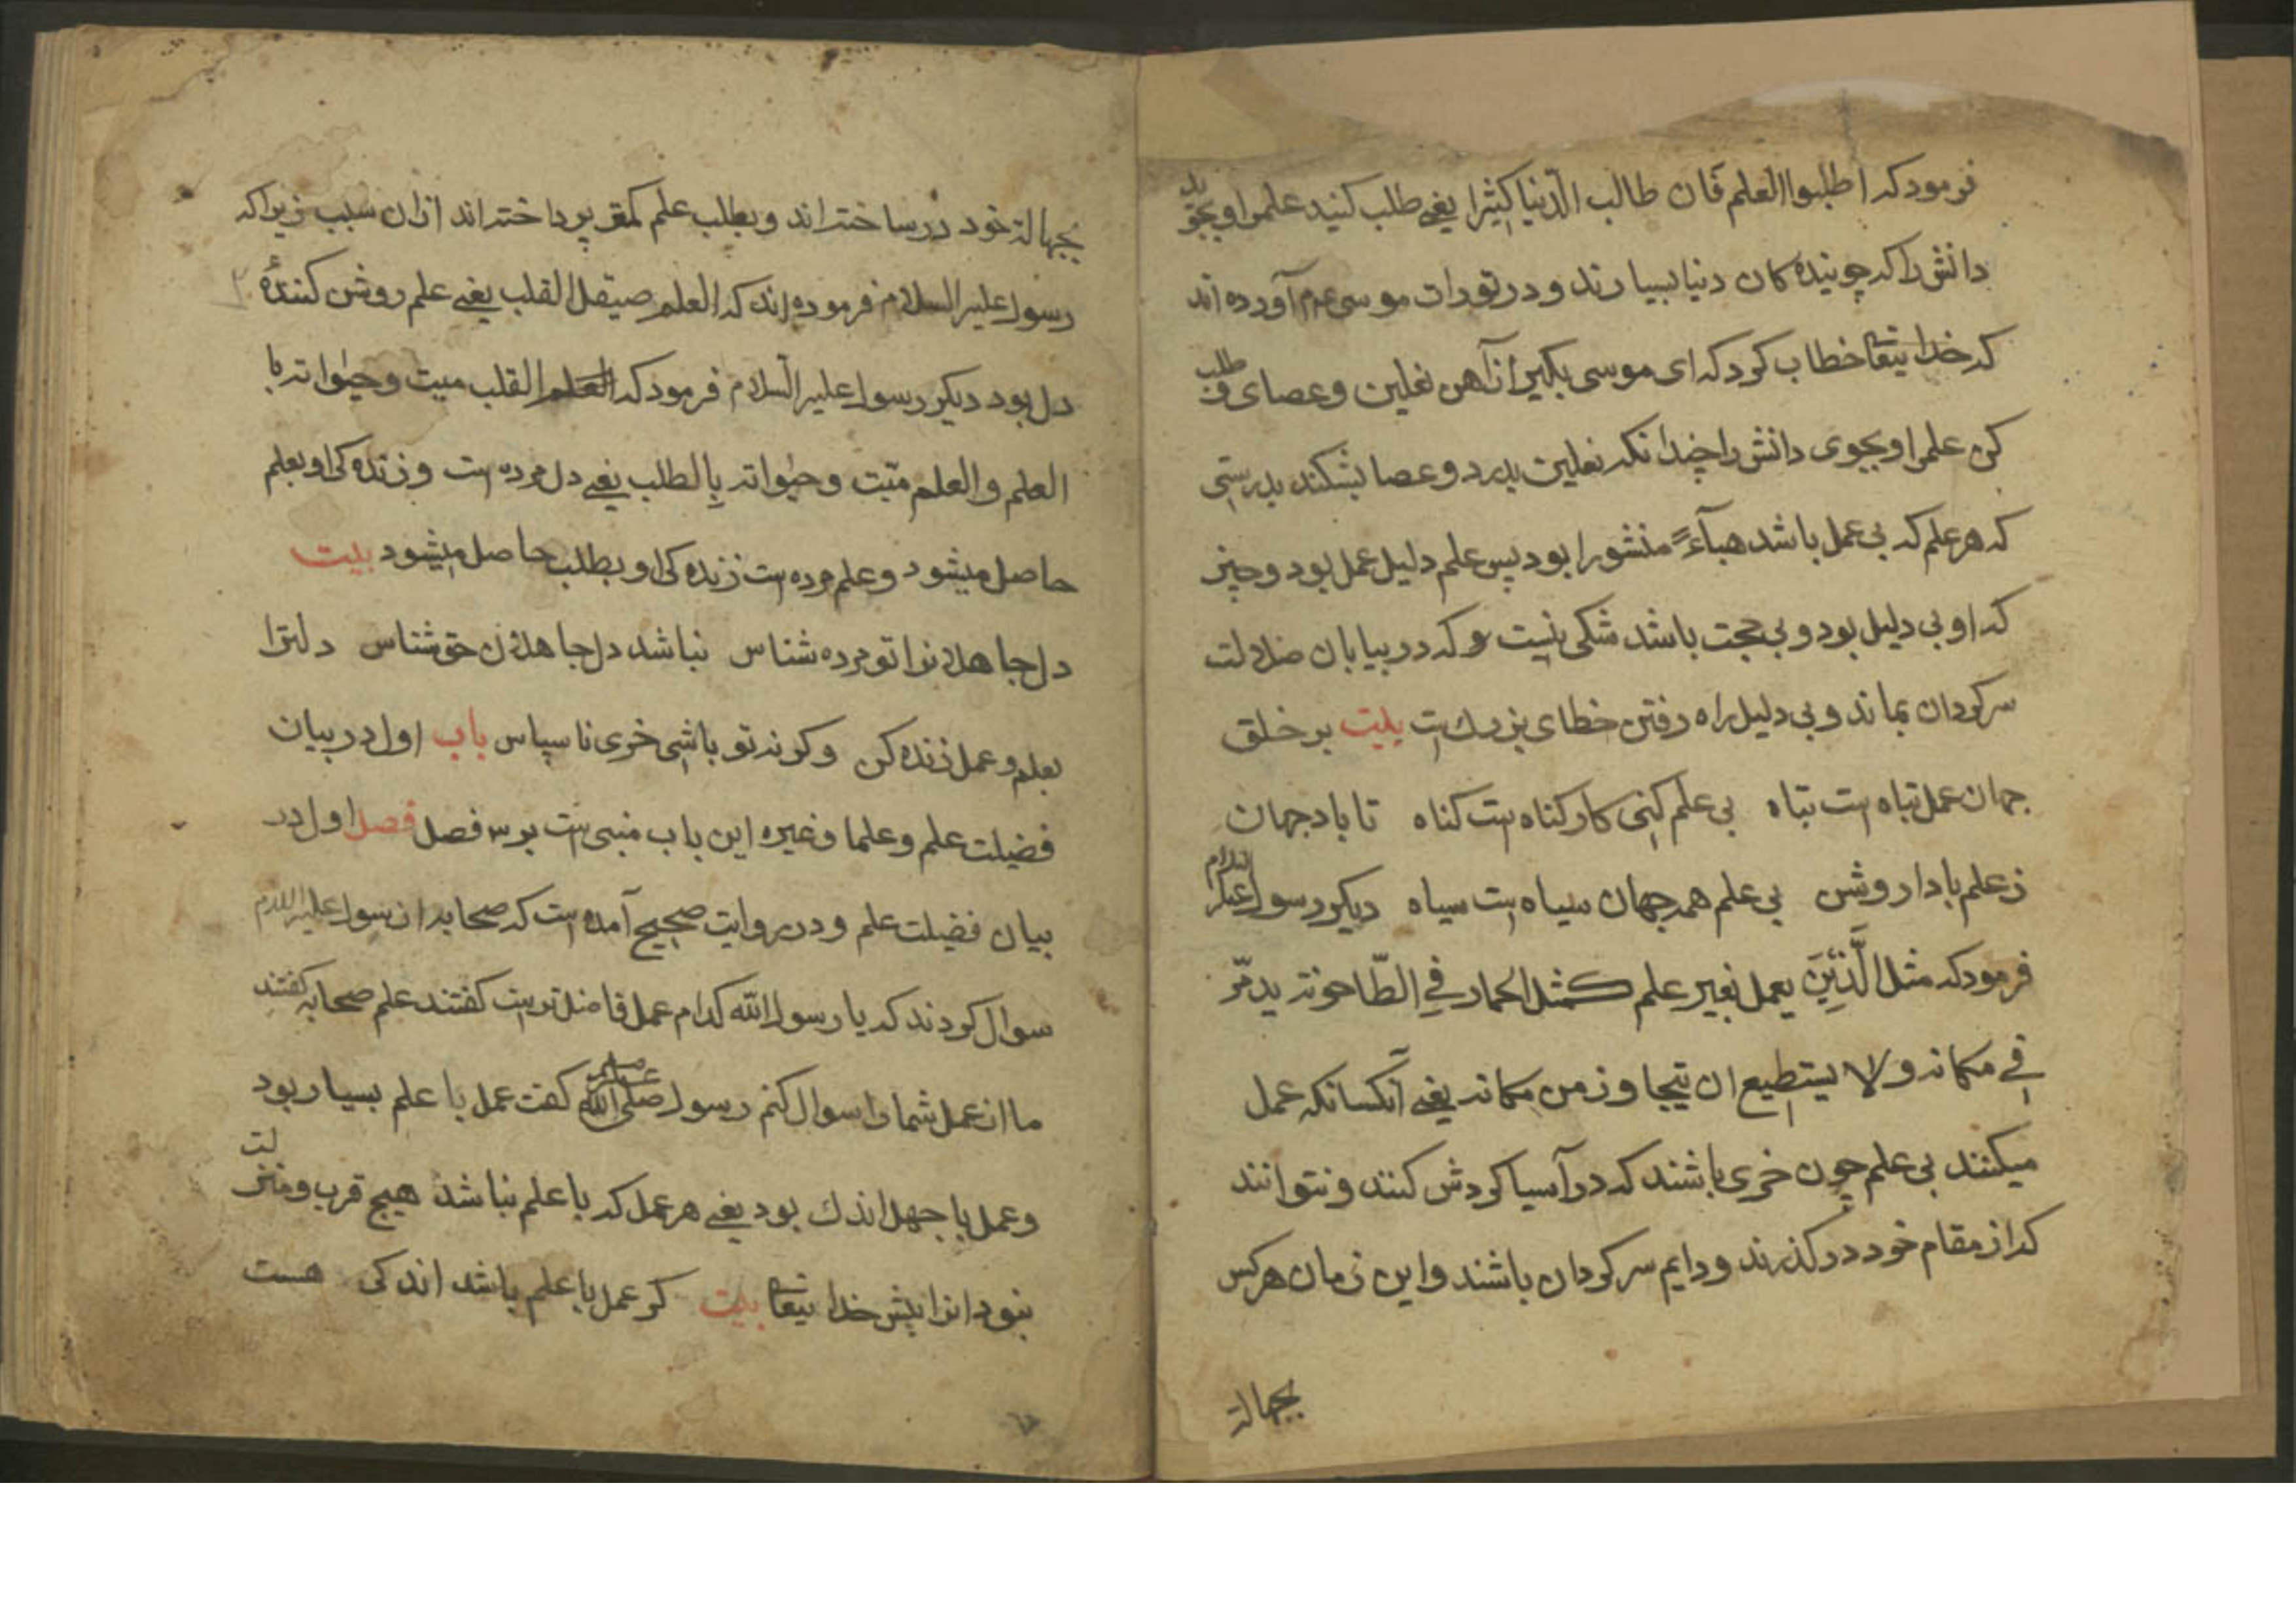 فرمود که اطلبوا العلم فان طالب الدنیا کثیرا یعنی طلب کنید علمرا و بجوید
دانش را که جوینده کان دنیا بسیارند و در تورات موسی عم آورده اند
که خدایتعا خطاب کرد که ای موسی بکیر از آهن نعلین و عصای و طلب
کن علمرا و بجوی دانش را چندانکه نعلین بدرد و عصا بشکند بدرستی
که هر علم که بی عمل باشد هبآءً منثورا بود پس علم دلیل عمل بود و چیز
که او بی دلیل بود و بی حجت باشد شکی نیست و که در بیابان ضلالت
سرکردان بماند و بی دلیل راه رفتن خطای بزرك است بیت بر خلق
جهان عمل تباه است تباه بی علم کنی کار کناه است کناه تا باد جهان
ز علم بادا روشن بی علم همه جهان سیاه است سیاه دیکر رسول علیه السلام
فرمود که مثل الَّذین یعمل بغیر علم کمثل الحمار فی الطّاحونه یدمّر
فی مکانه ولا یستطیع ان یتجاوز من مکانه یعنی آنکسانکه عمل
میکنند بی علم چون خری باشند که در آسیا کردش کنند و نتوانند
که از مقام خود در کذرند و دایم سرکردان باشند و این زمان هر کس
بجهالة
بجهالة خود در ساخته اند و بطلب علم کمتر پرداخته اند ازان سبب زیرا که
رسول علیه السلام فرموده اند که العلم صیقل القلب یعنی علم روشن کنندهٔ
دل بود دیکر رسول علیه السلام فرمود که العلم القلب میت و حیٰواته با
العلم و العلم میّت و حیٰواته بالطلب یعنی دل مرده است و زنده کی او بعلم
حاصل میشود و علم مرده است زنده کی او بطلب حاصل میشود بیت
دل جاهلانرا تو مرده شناس نباشد دل جاهلان حق شناس دلترا
بعلم و عمل زنده کن و کرنه تو باشی خری ناسپاس باب اول در بیان
فضیلت علم و علما و غیره این باب مبنی است بر سه فصل فصل اول در
بیان فضیلت علم و در روایت صحیح آمده است که صحابه از رسول علیه السلام
سوال کردند که یا رسول الله کدام عمل فاضلتر است کفتند علم صحابه کفتند
ما از عمل شما را سوال کنم رسول صلی الله علیه وسلم کفت عمل با علم بسیار بود
و عمل با جهل اندك بود یعنی هر عمل که با علم نباشد هیچ قرب و منزلت
نبود انرا پیش خدایتعا بیت کر عمل با علم باشد اندکی هست